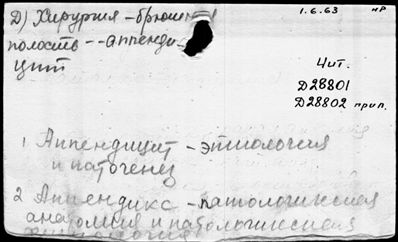 Д) Хирургия - брюшная
1.6.63 нр
полость -- аппенди-
цит
Чит.
D28801
D28802 прил.
1 Аппендицит - этиология
и патогенез
2 Аппендикс - патологическая
анатомия и патологическая
физиология